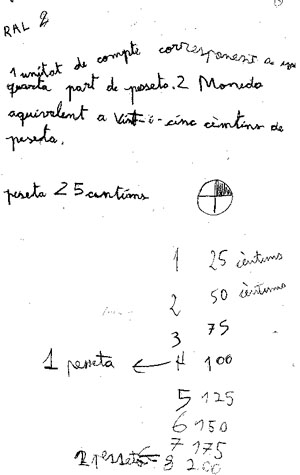 RAL 2
1 unitat de compte corresponent a una
quarta part de peseta. 2 Moneda
aquivalent a Vint-i-cinc cèmtims de
peseta.
peseta 25 centims
1 25 cèntims
2 50 cèntims
3 75
1 peseta ← 4 100
5 125
6 150
7 175
2 pessetes ← 8 200